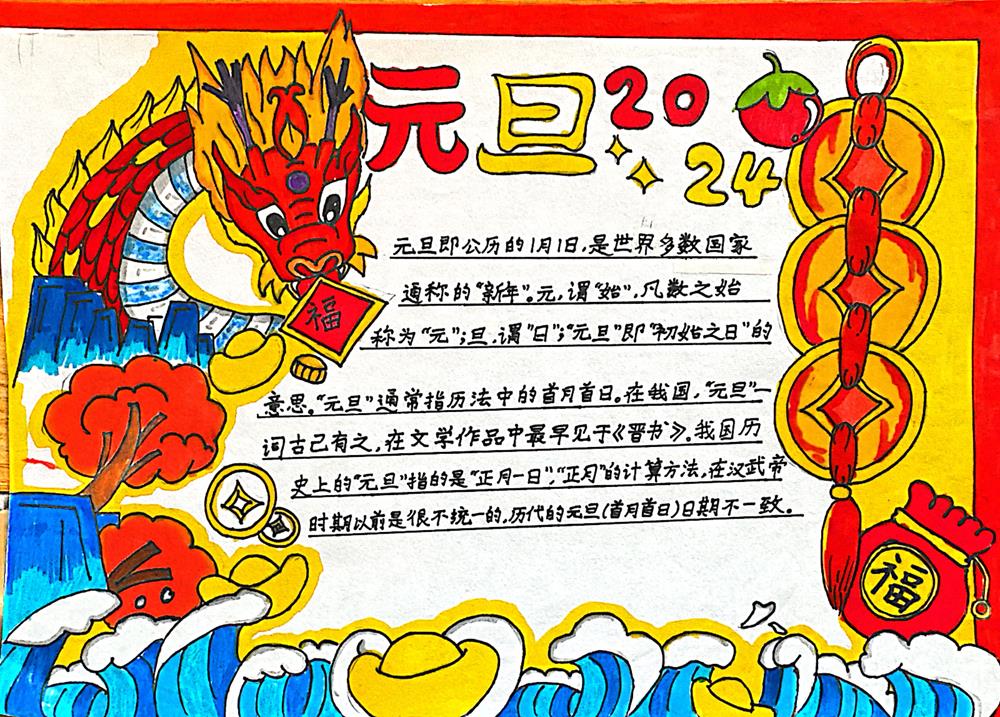 元旦 20
24
元旦即公历的1月1日,是世界多数国家
通称的“新年”。元,谓“始”,凡数之始
称为“元”;旦,谓“日”;“元旦”即“初始之日”的
意思。“元旦”通常指历法中的首月首日。在我国,“元旦”一
词古已有之,在文学作品中最早见于《晋书》。我国历
史上的“元旦”指的是“正月一日”,“正月”的计算方法,在汉武帝
时期以前是很不统一的,历代的元旦(首月首日)日期不一致。
福
福